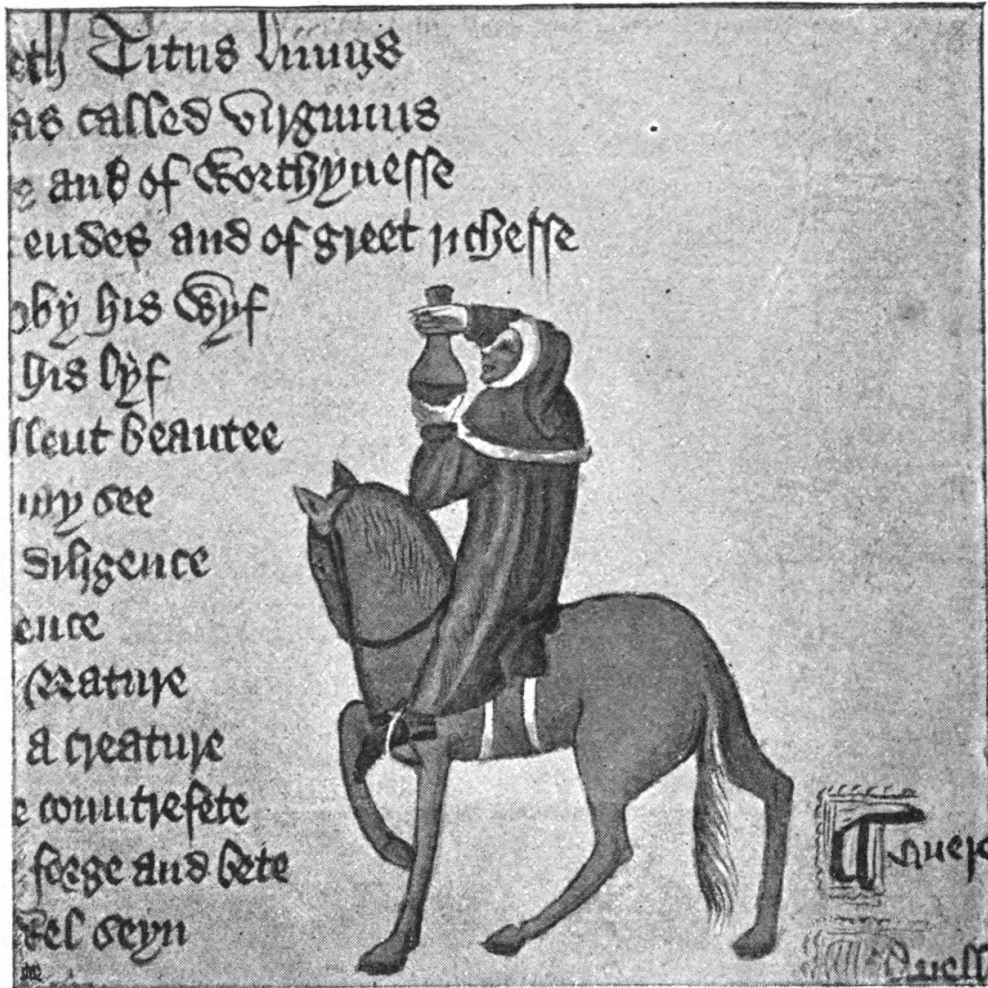 eth Titus Liuius
as called Virginius
and of Worthynesse
endes and of greet richesse
by his Wyf
his lyf
llent beautee
may see
diligence
ence
Nature
a creature
countrefete
forge and bete
wel seyn